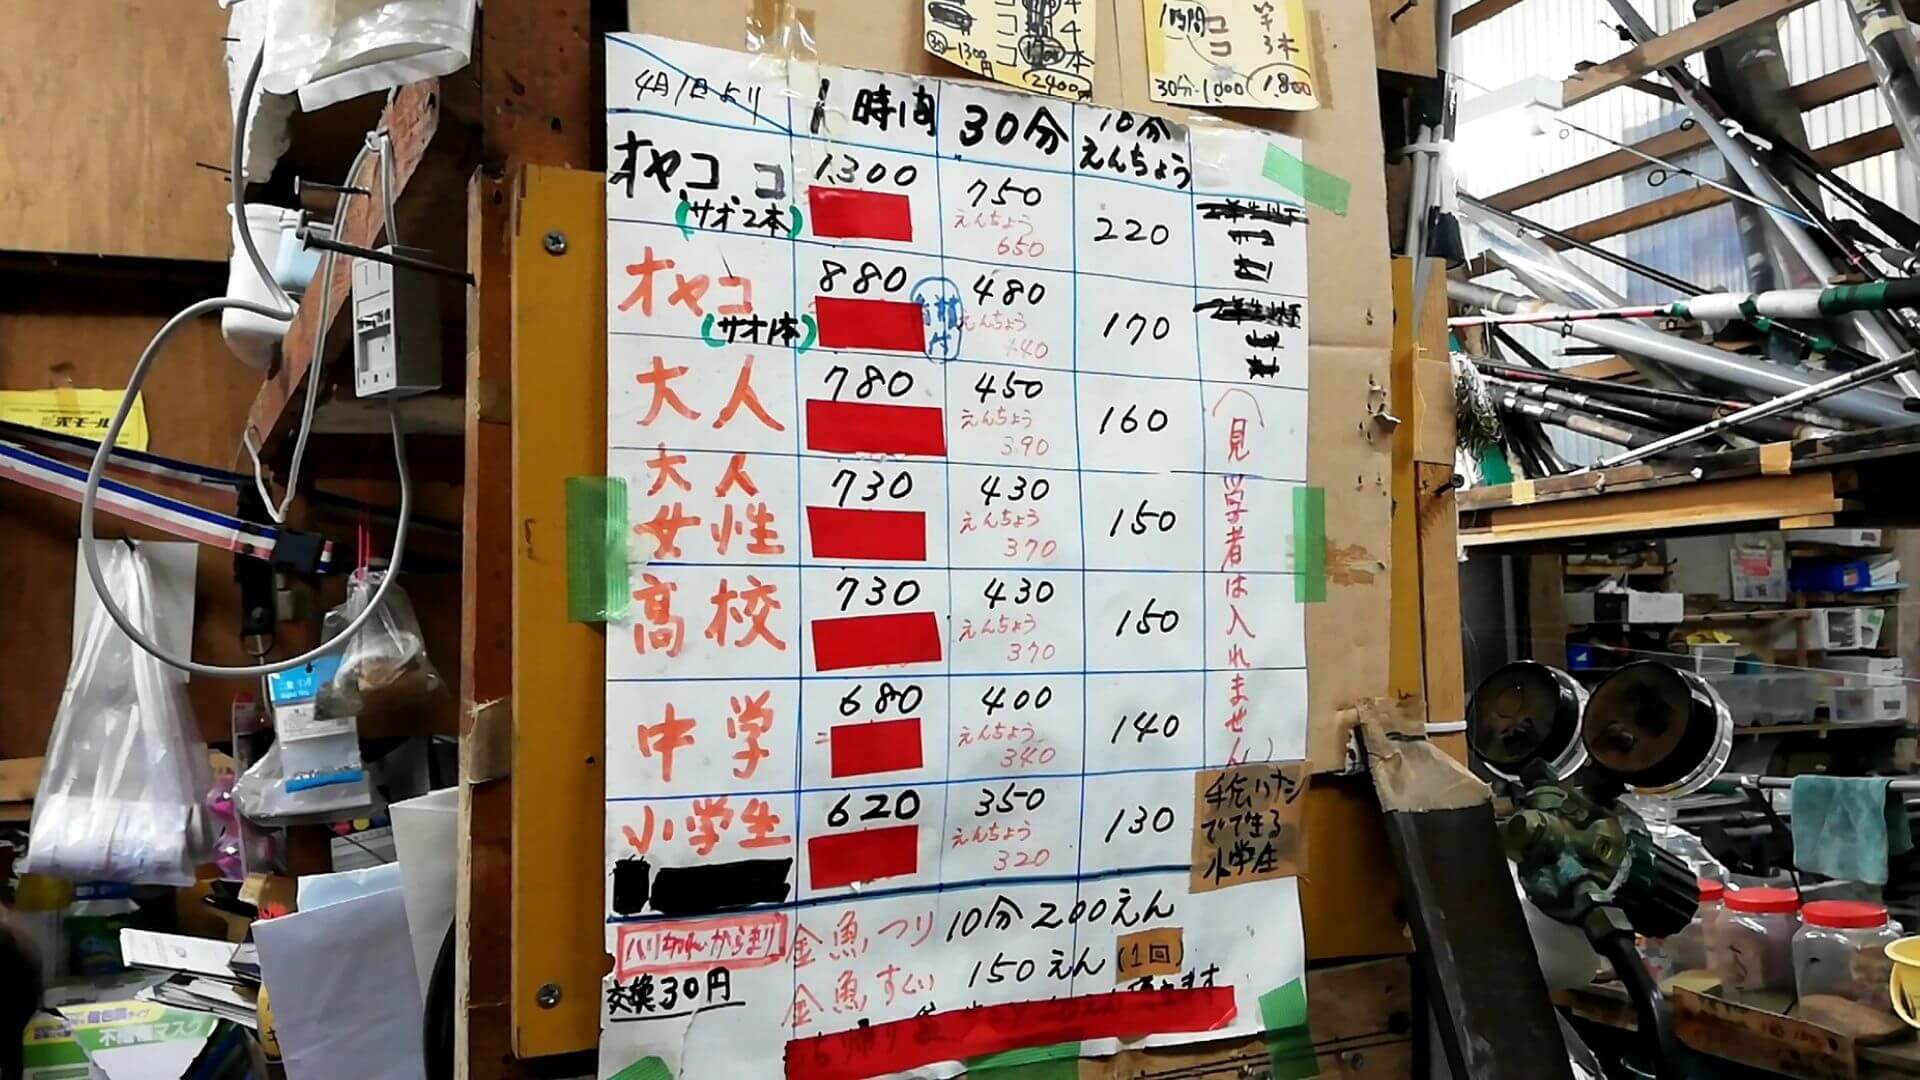 30-1300円
2400円
1時間
ココ
竿3本
30分-1,000
1,800
4月1日より
1時間
30分
10分
えんちょう
オヤココ
(サオ2本)
1,300
750
えんちょう
650
220
オヤコ
(サオ1本)
880
480
えんちょう
170
大人
780
450
えんちょう
390
160
大人
女性
730
430
えんちょう
370
150
高校
730
430
えんちょう
370
150
中学
680
400
えんちょう
340
140
小学生
620
350
えんちょう
320
130
(見学者は入れません)
小学生
交換30円
金魚つり 10分 200えん
金魚すくい 150えん (1回)